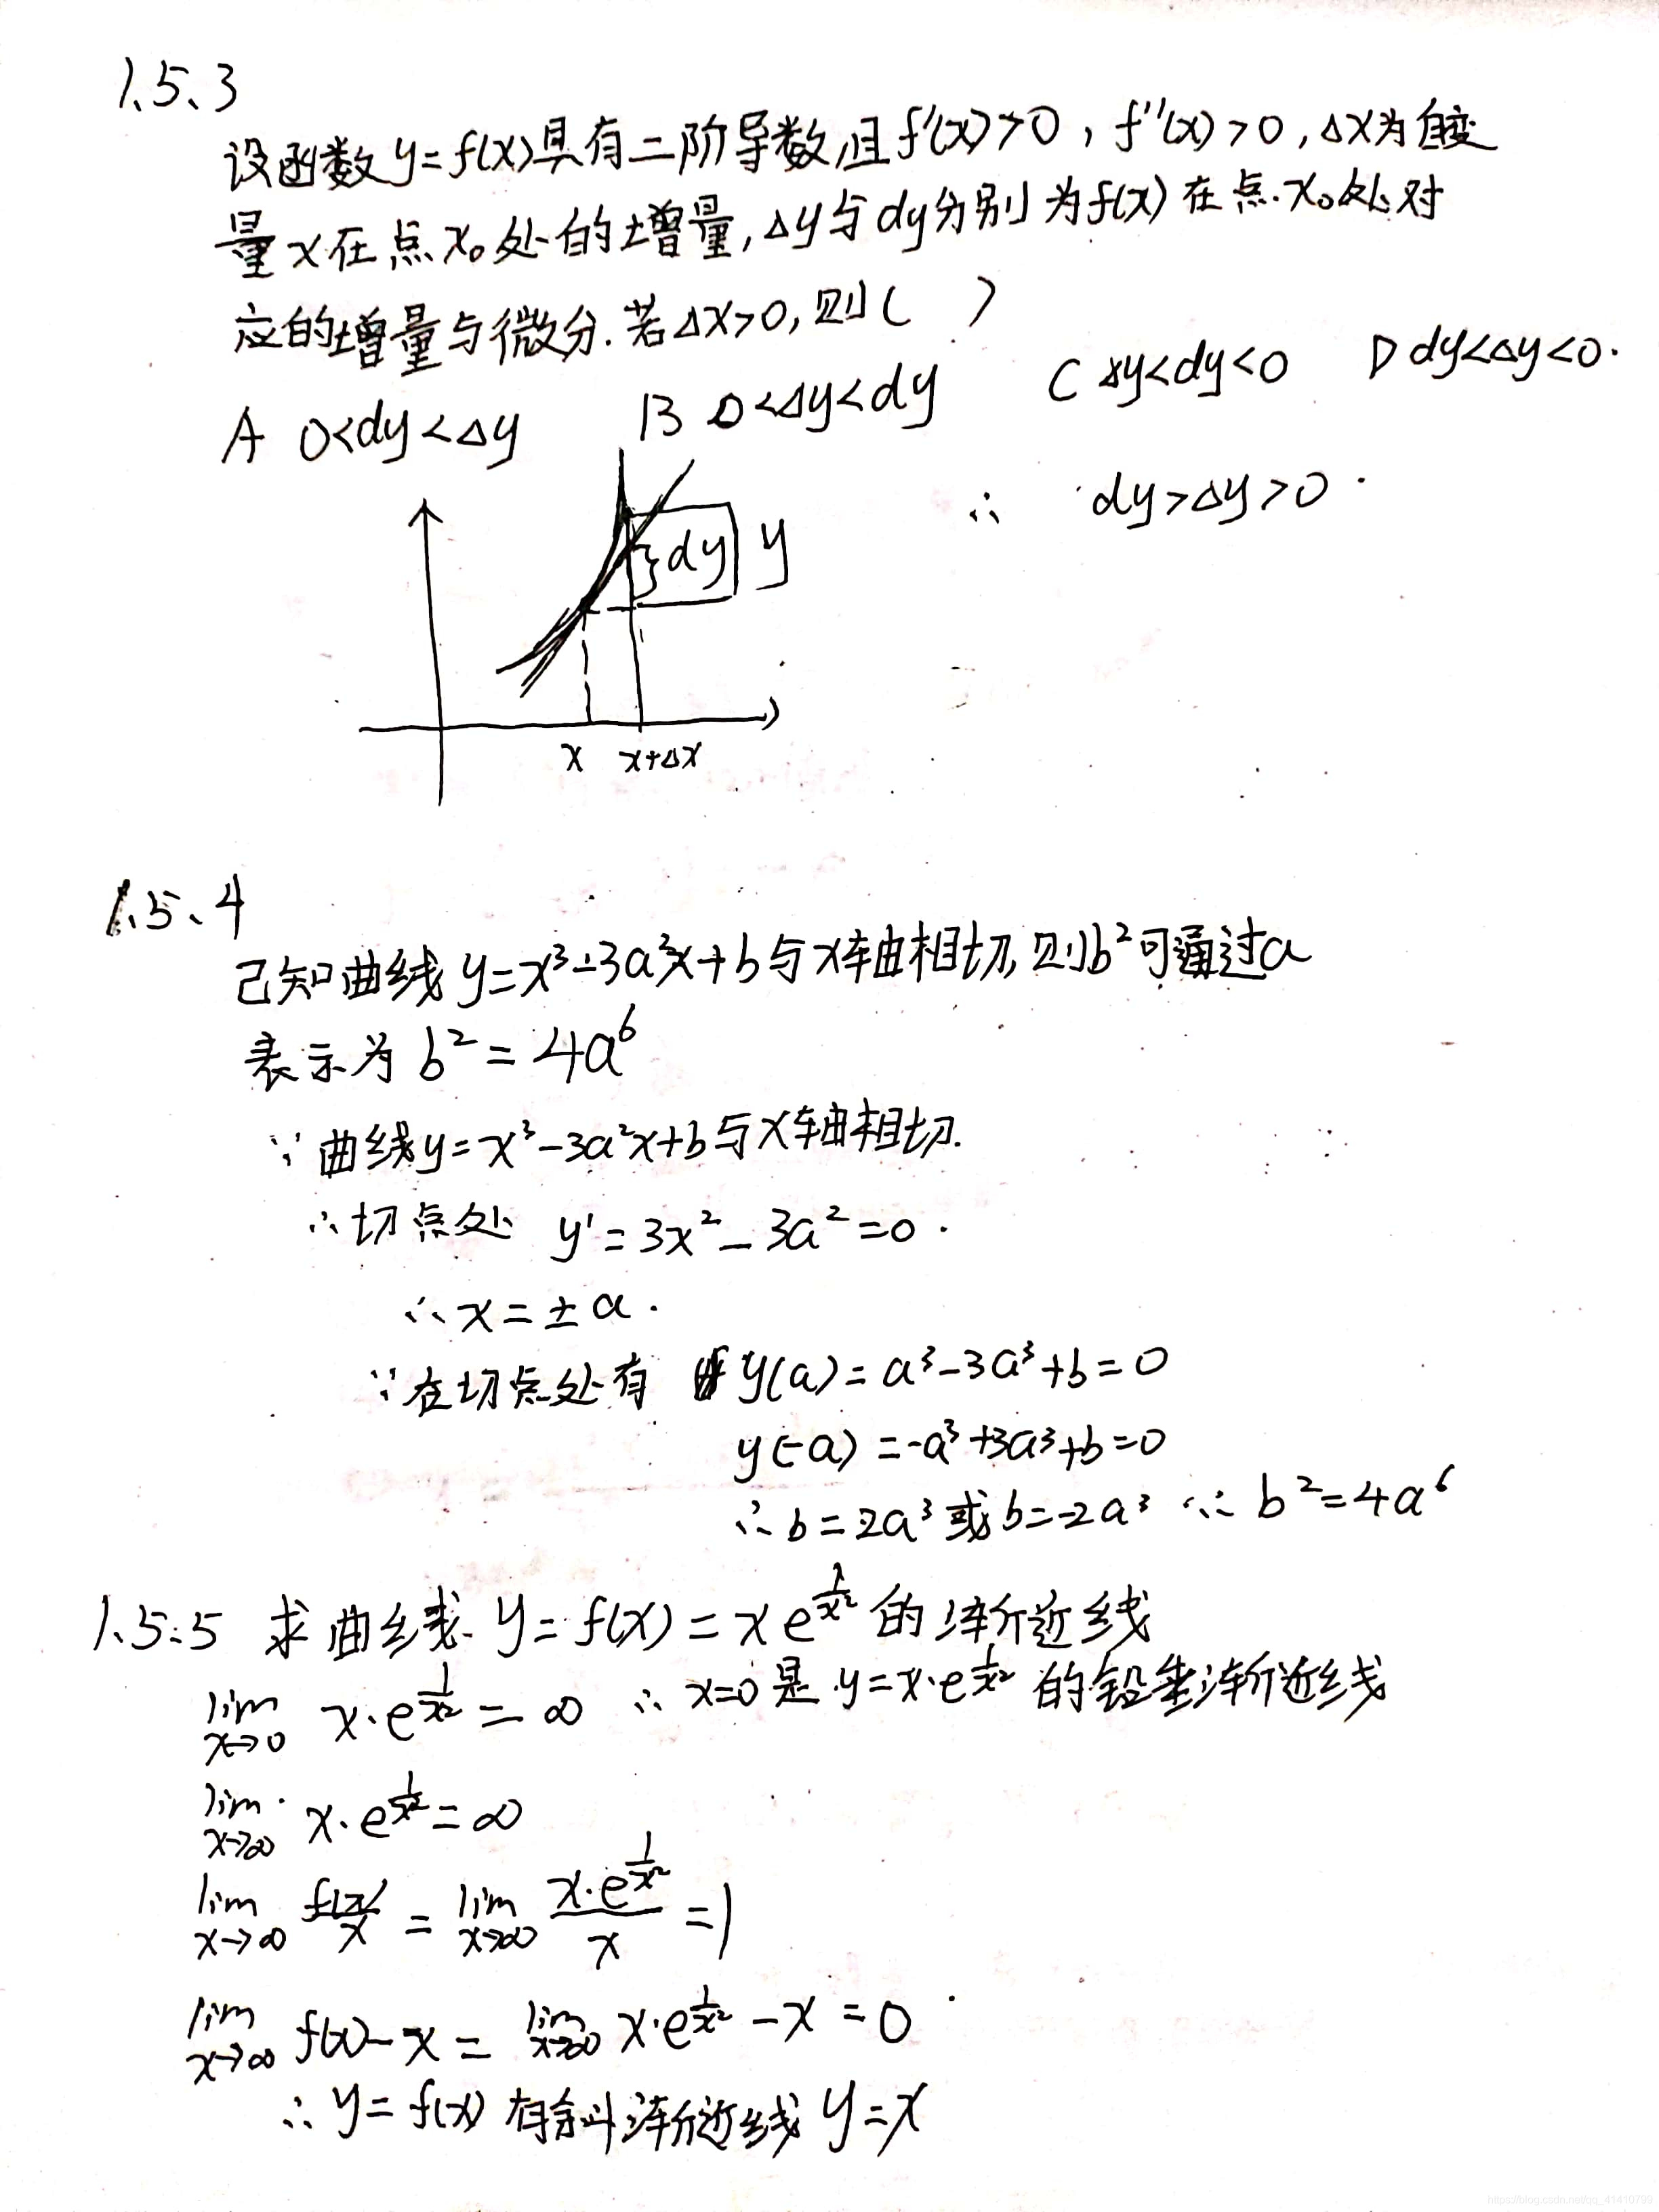 1、5、3
设函数y=f(x)具有二阶导数,且f'(x)>0,f''(x)>0,Δx为自变
量x在点x₀处的增量,Δy与dy分别为f(x)在点x₀处对
应的增量与微分.若Δx>0,则( )
A 0<dy<Δy B 0<Δy<dy C Δy<dy<0 D dy<Δy<0.
∴ dy>Δy>0.
dy y
x x+Δx
1、5、4
已知曲线y=x³-3a²x+b与x轴相切,则b²可通过a
表示为b²=4a⁶
∵曲线y=x³-3a²x+b与x轴相切.
∴切点处 y'=3x²-3a²=0.
∴x=±a.
∵在切点处有 y(a)=a³-3a³+b=0
y(-a)=-a³+3a³+b=0
∴b=2a³或b=-2a³ ∴b²=4a⁶
1、5、5 求曲线y=f(x)=xe^{1/x²}的渐近线
lim_{x→0} x·e^{1/x²}=∞ ∴x=0是y=x·e^{1/x²}的铅垂渐近线
lim_{x→∞} x·e^{1/x²}=∞
lim_{x→∞} f(x)/x = lim_{x→∞} x·e^{1/x²}/x =1
lim_{x→∞} f(x)-x = lim_{x→∞} x·e^{1/x²}-x=0
∴y=f(x)有斜渐近线y=x
https://blog.csdn.net/qq_41410799